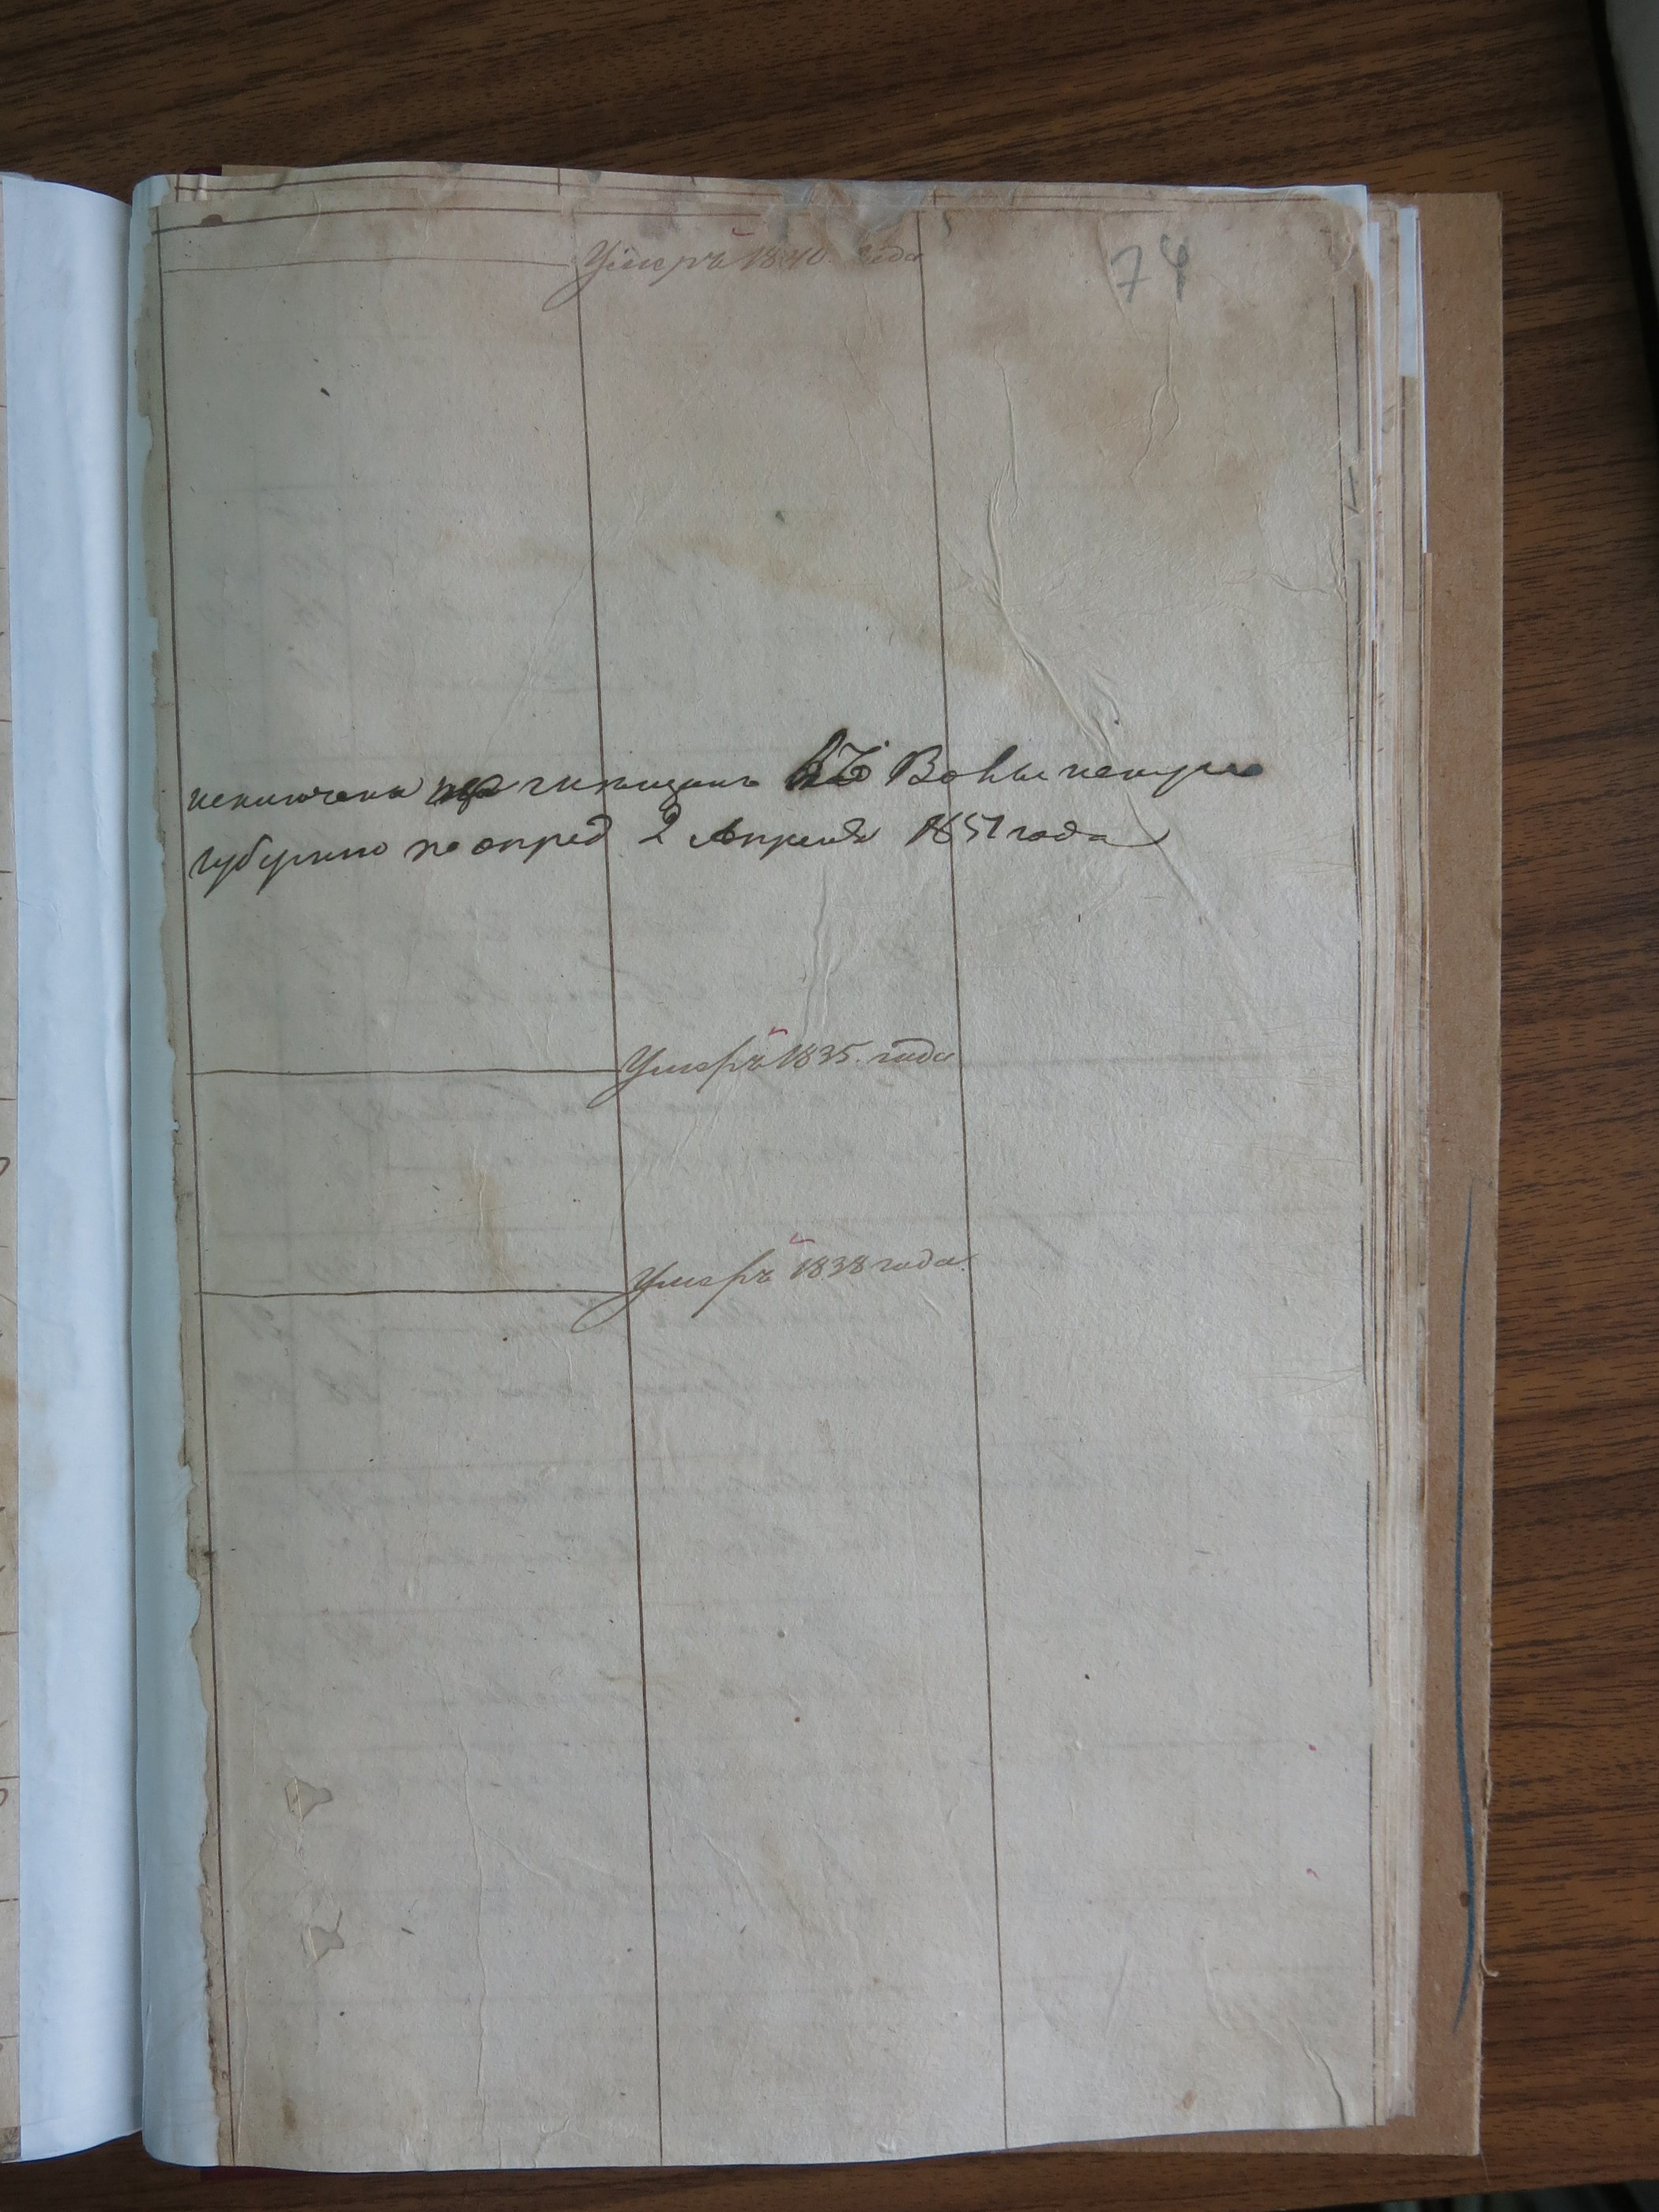 Умеръ 1840. года
74
исключены въ Волынскую
губернию по опред 2 Апреля 1851 года
Умеръ 1835. года
Умеръ 1838 года.